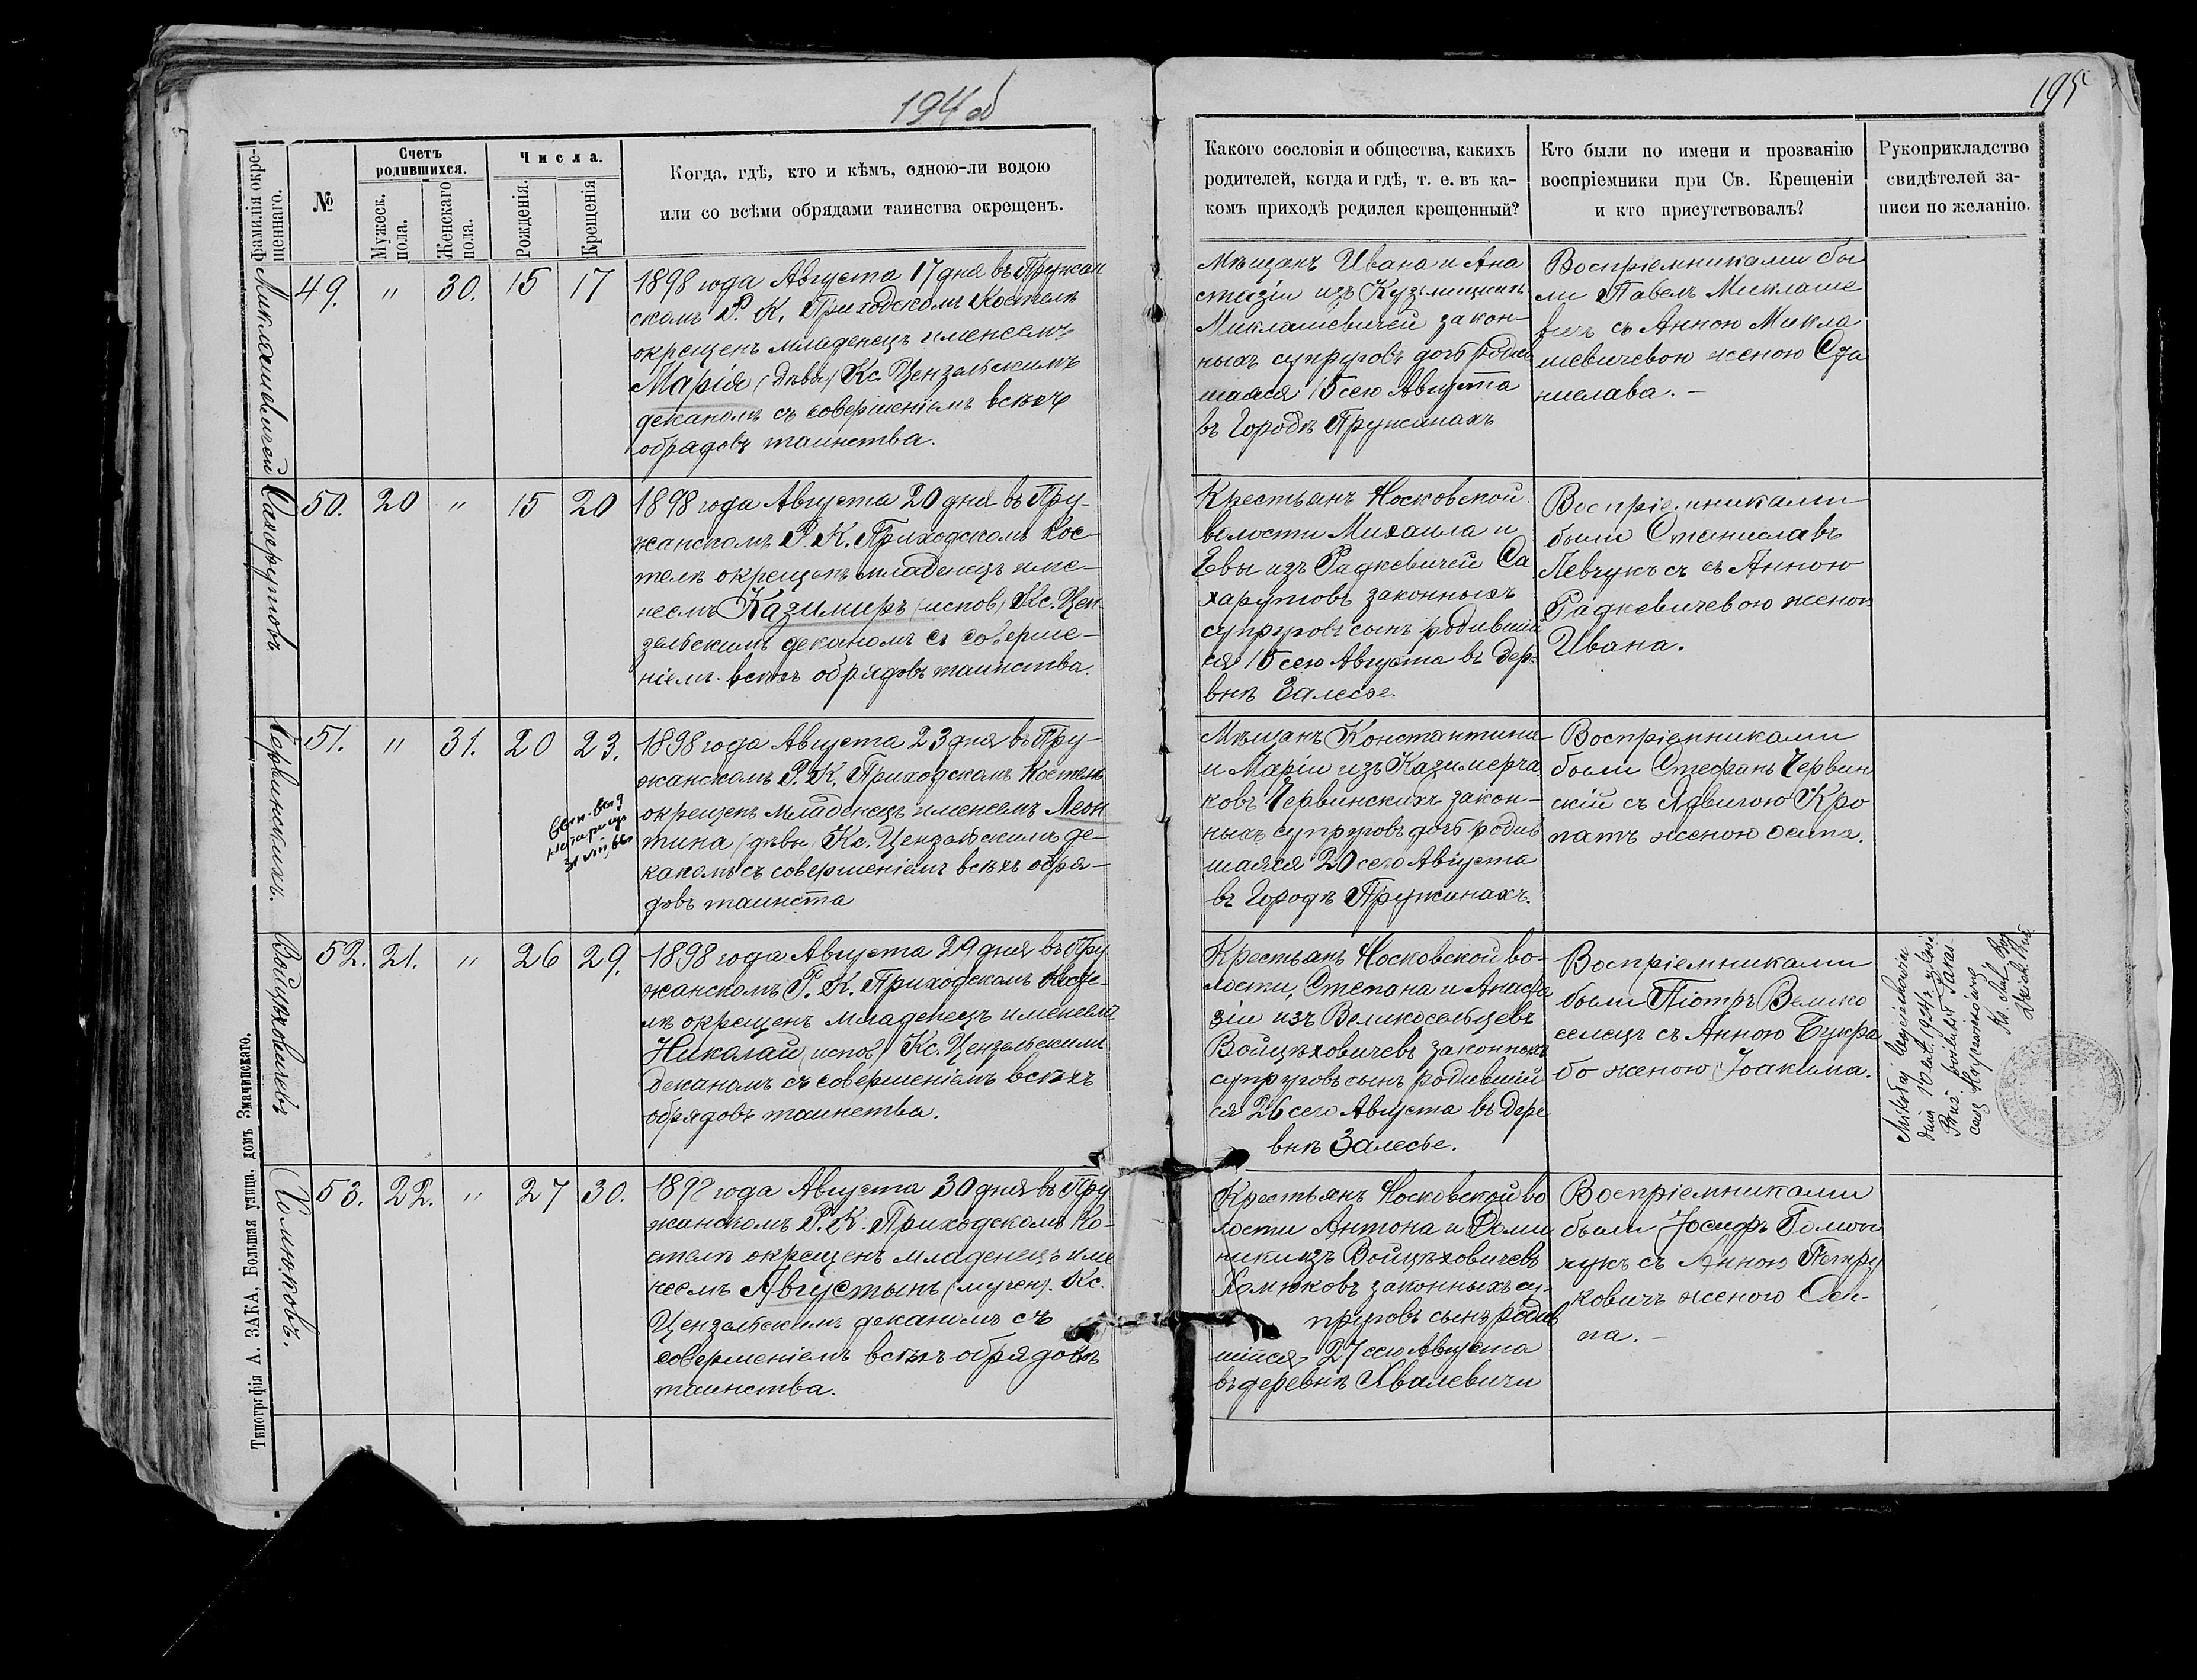 194 об
195
Фамилія окре-
щеннаго.
№
Счетъ
родившихся.
Мужеск.
пола.
Женскаго
пола.
Числа.
Рожденія.
Крещенія
Когда, гдѣ, кто и кѣмъ, одною-ли водою
или со всѣми обрядами таинства окрещенъ.
Какого сословія и общества, какихъ
родителей, когда и гдѣ, т. е. въ ка-
комъ приходѣ родился крещенный?
Кто были по имени и прозванію
воспріемники при Св. Крещеніи
и кто присутствовалъ?
Рукоприкладство
свидѣтелей за-
писи по желанію.
Миклашевичей
49.
"
30.
15
17
1898 года Августа 17 дня въ Пружан
скомъ Р. К. Приходскомъ Костелѣ
окрещенъ младенецъ именемъ
Марія (дѣвы) Кс. Цензальскимъ
деканомъ съ совершеніемъ всѣхъ
обрядовъ таинства.
Мѣщанъ Ивана и Ана
стазіи изъ Кузьмицкихъ
Миклашевичей закон-
ныхъ супруговъ дочь родив
шаяся 15 сего Августа
въ Городѣ Пружанахъ
Воспріемниками бы
ли Павелъ Миклаше
вичъ съ Анною Микла
шевичевою женою Ста
нислава. –
Сахарутовъ
50.
20
"
15
20
1898 года Августа 20 дня въ Пру-
жанскомъ Р. К. Приходскомъ Кос-
телѣ окрещенъ младенецъ име-
неемъ Казимиръ (испов) Кс. Цен-
зальскимъ деканомъ съ соверше-
ніемъ всѣхъ обрядовъ таинства.
Крестьянъ Носковской
волости Михаила и
Евы изъ Радкевичей Са
харутовъ законныхъ
супруговъ сынъ родивший
ся 15 сего Августа въ дер-
внѣ Залесье
Воспріемниками
были Станиславъ
Левчукъ съ съ Анною
Радкевичевою женою
Ивана.
Червинскихъ.
51.
"
31.
20
23.
1898 года Августа 23 дня въ Пру-
жанскомъ Р. К. Приходскомъ Костелѣ
окрещенъ младенецъ именемъ Леон
тина (дѣвы) Кс. Цензальскимъ де-
каномъ съ совершеніемъ всѣхъ обря-
довъ таинста
Мѣщанъ Константина
и Маріи изъ Казимерча
ковъ Червинскихъ закон-
ныхъ супруговъ дочь родив
шаяся 20 сего Августа
въ Городѣ Пружанахъ.
Воспріемниками
были Стефанъ Червин
скій съ Ядвигою Кро
патъ женою Осипа.
Войцѣховичевъ
52.
21.
"
26
29.
1898 года Августа 29 дня въ Пру
жанскомъ Р. К. Приходскомъ Косте-
лѣ окрещенъ младенецъ именемъ
Николай (испов) Кс. Цензальскимъ
деканомъ съ совершеніемъ всѣхъ
обрядовъ таинства.
Крестьянъ Носковской во-
лости, Степана и Анаста
зіи изъ Великосельцевъ
Войцѣховичевъ законныхъ
супруговъ сынъ родивший
ся 26 сего Августа въ Дере
внѣ Залесье.
Воспріемниками
были Піотръ Велико
селецъ съ Анною Букра
бо женою Іоакима.
Хомюковъ.
53.
22.
"
27
30.
1898 года Августа 30 дня въ Пру
жанскомъ Р. К. Приходскомъ Ко-
стелѣ окрещенъ младенецъ име
неемъ Августынъ (мучен). Кс.
Цензальскимъ деканомъ съ
совершеніемъ всѣхъ обрядовъ
таинства.
Крестьянъ Носковской во
лости Антона и Доми
ники изъ Войцѣховичевъ
Хомюковъ законныхъ су-
пруговъ сынъ родив
шійся 27 сего Августа
въ деревнѣ Хвалевичи
Воспріемниками
были Іосифъ Гомон
чукъ съ Анною Петру
ковичъ женою Оси-
па. –
Типографія А. ЗАКА, Большая улица, домъ Значинскаго.